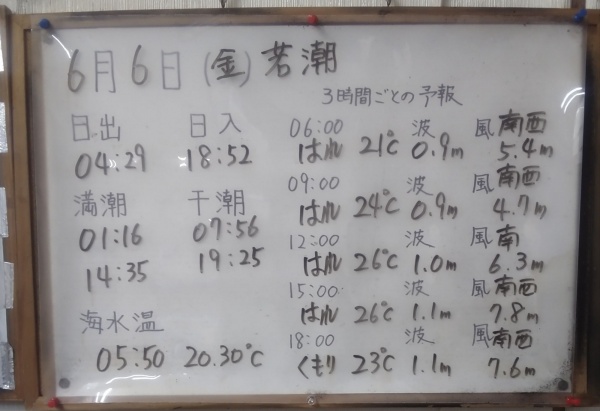 6月6日(金)若潮
3時間ごとの予報
日出 日入
04:29 18:52
満潮 干潮
01:16 07:56
14:35 19:25
海水温
05:50 20.30℃
06:00 波 風 南西
はれ 21℃ 0.9m 5.4m
09:00 波 風 南西
はれ 24℃ 0.9m 4.7m
12:00 波 風 南
はれ 26℃ 1.0m 6.3m
15:00 波 風 南西
はれ 26℃ 1.1m 7.8m
18:00 波 風 南西
くもり 23℃ 1.1m 7.6m